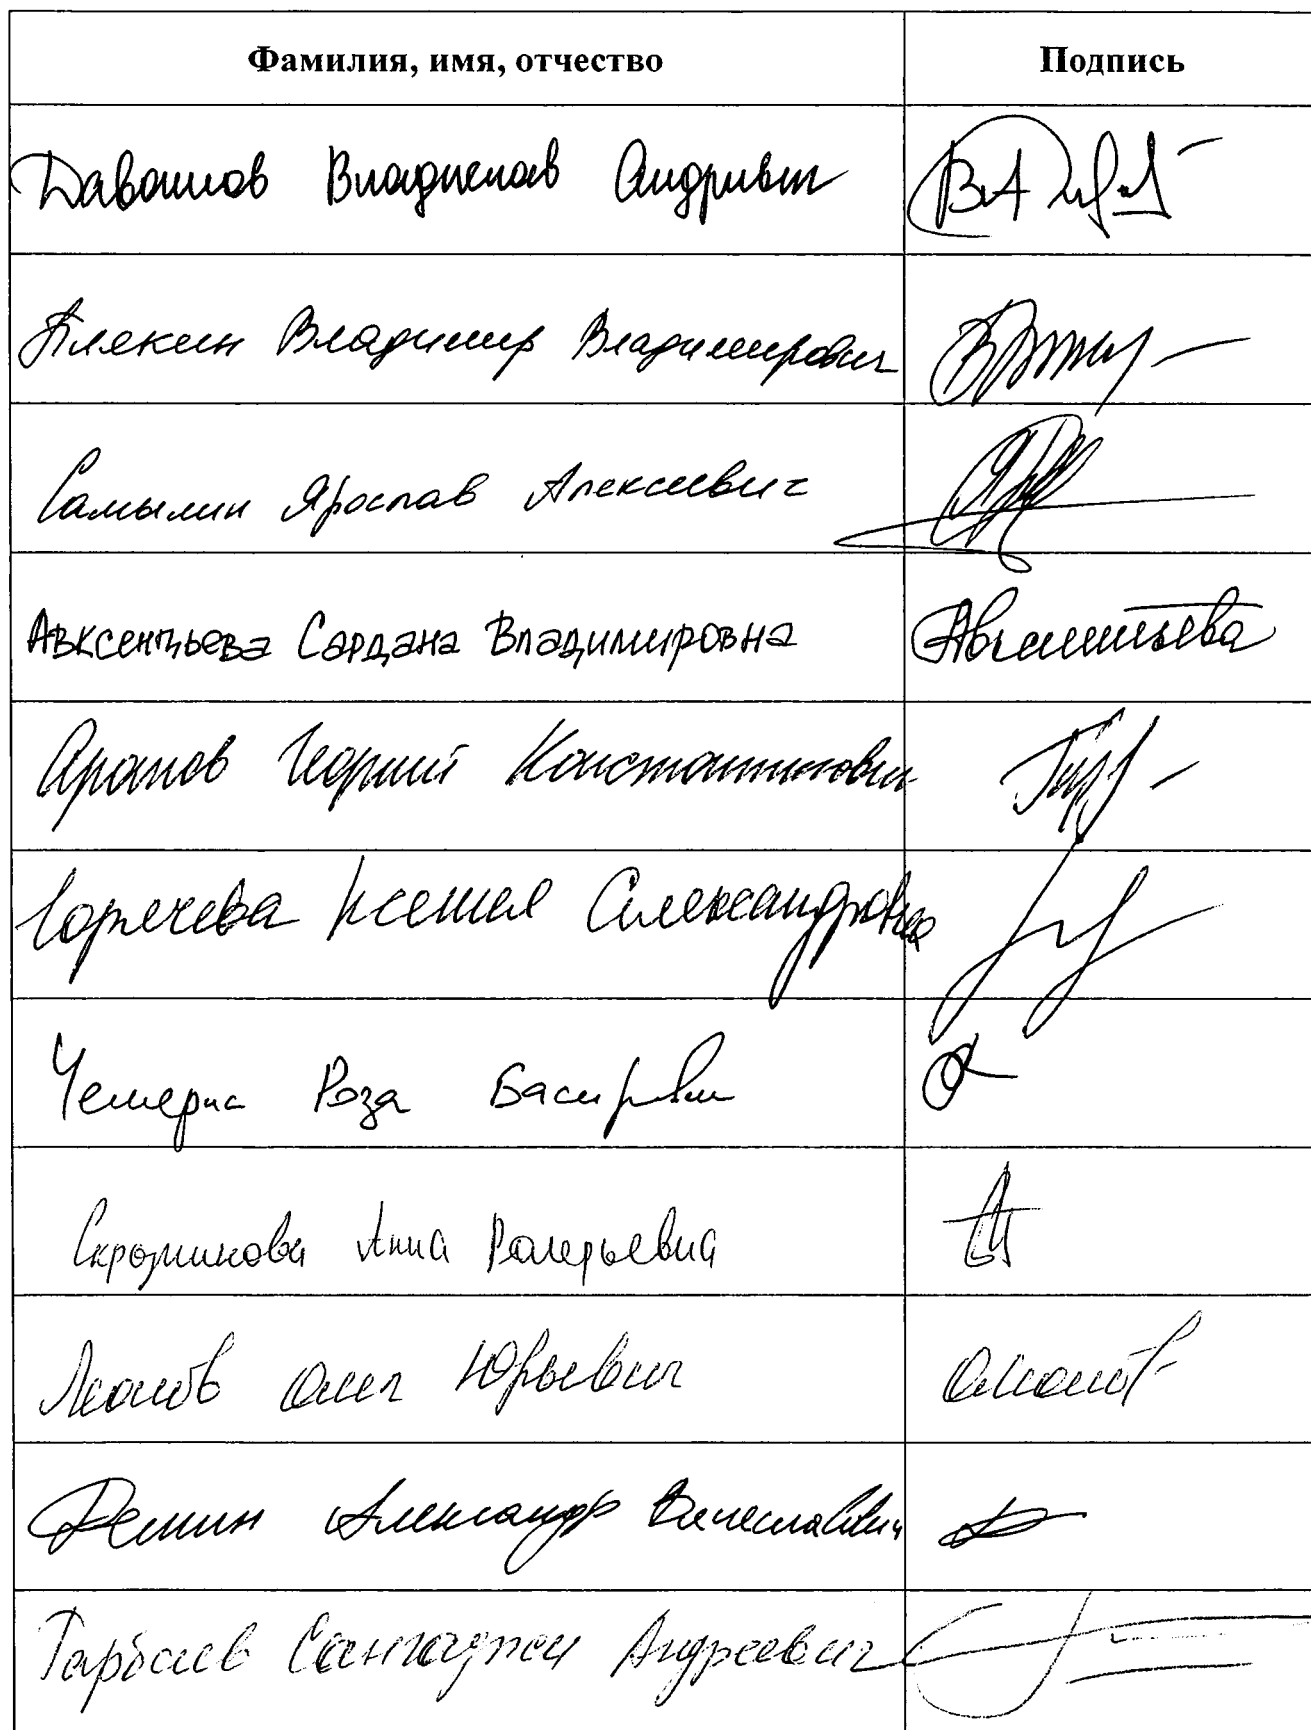 Фамилия, имя, отчество Подпись
Даванков Владислав Андреевич
Плякин Владимир Владимирович
Самылин Ярослав Алексеевич
Авксентьева Сардана Владимировна Авксентьева
Арапов Георгий Константинович
Горячева Ксения Александровна
Чемерис Роза Басировна
Скрозникова Анна Валерьевна
Леонов Олег Юрьевич
Демин Александр Вячеславович
Тарбаев Сангаджи Андреевич